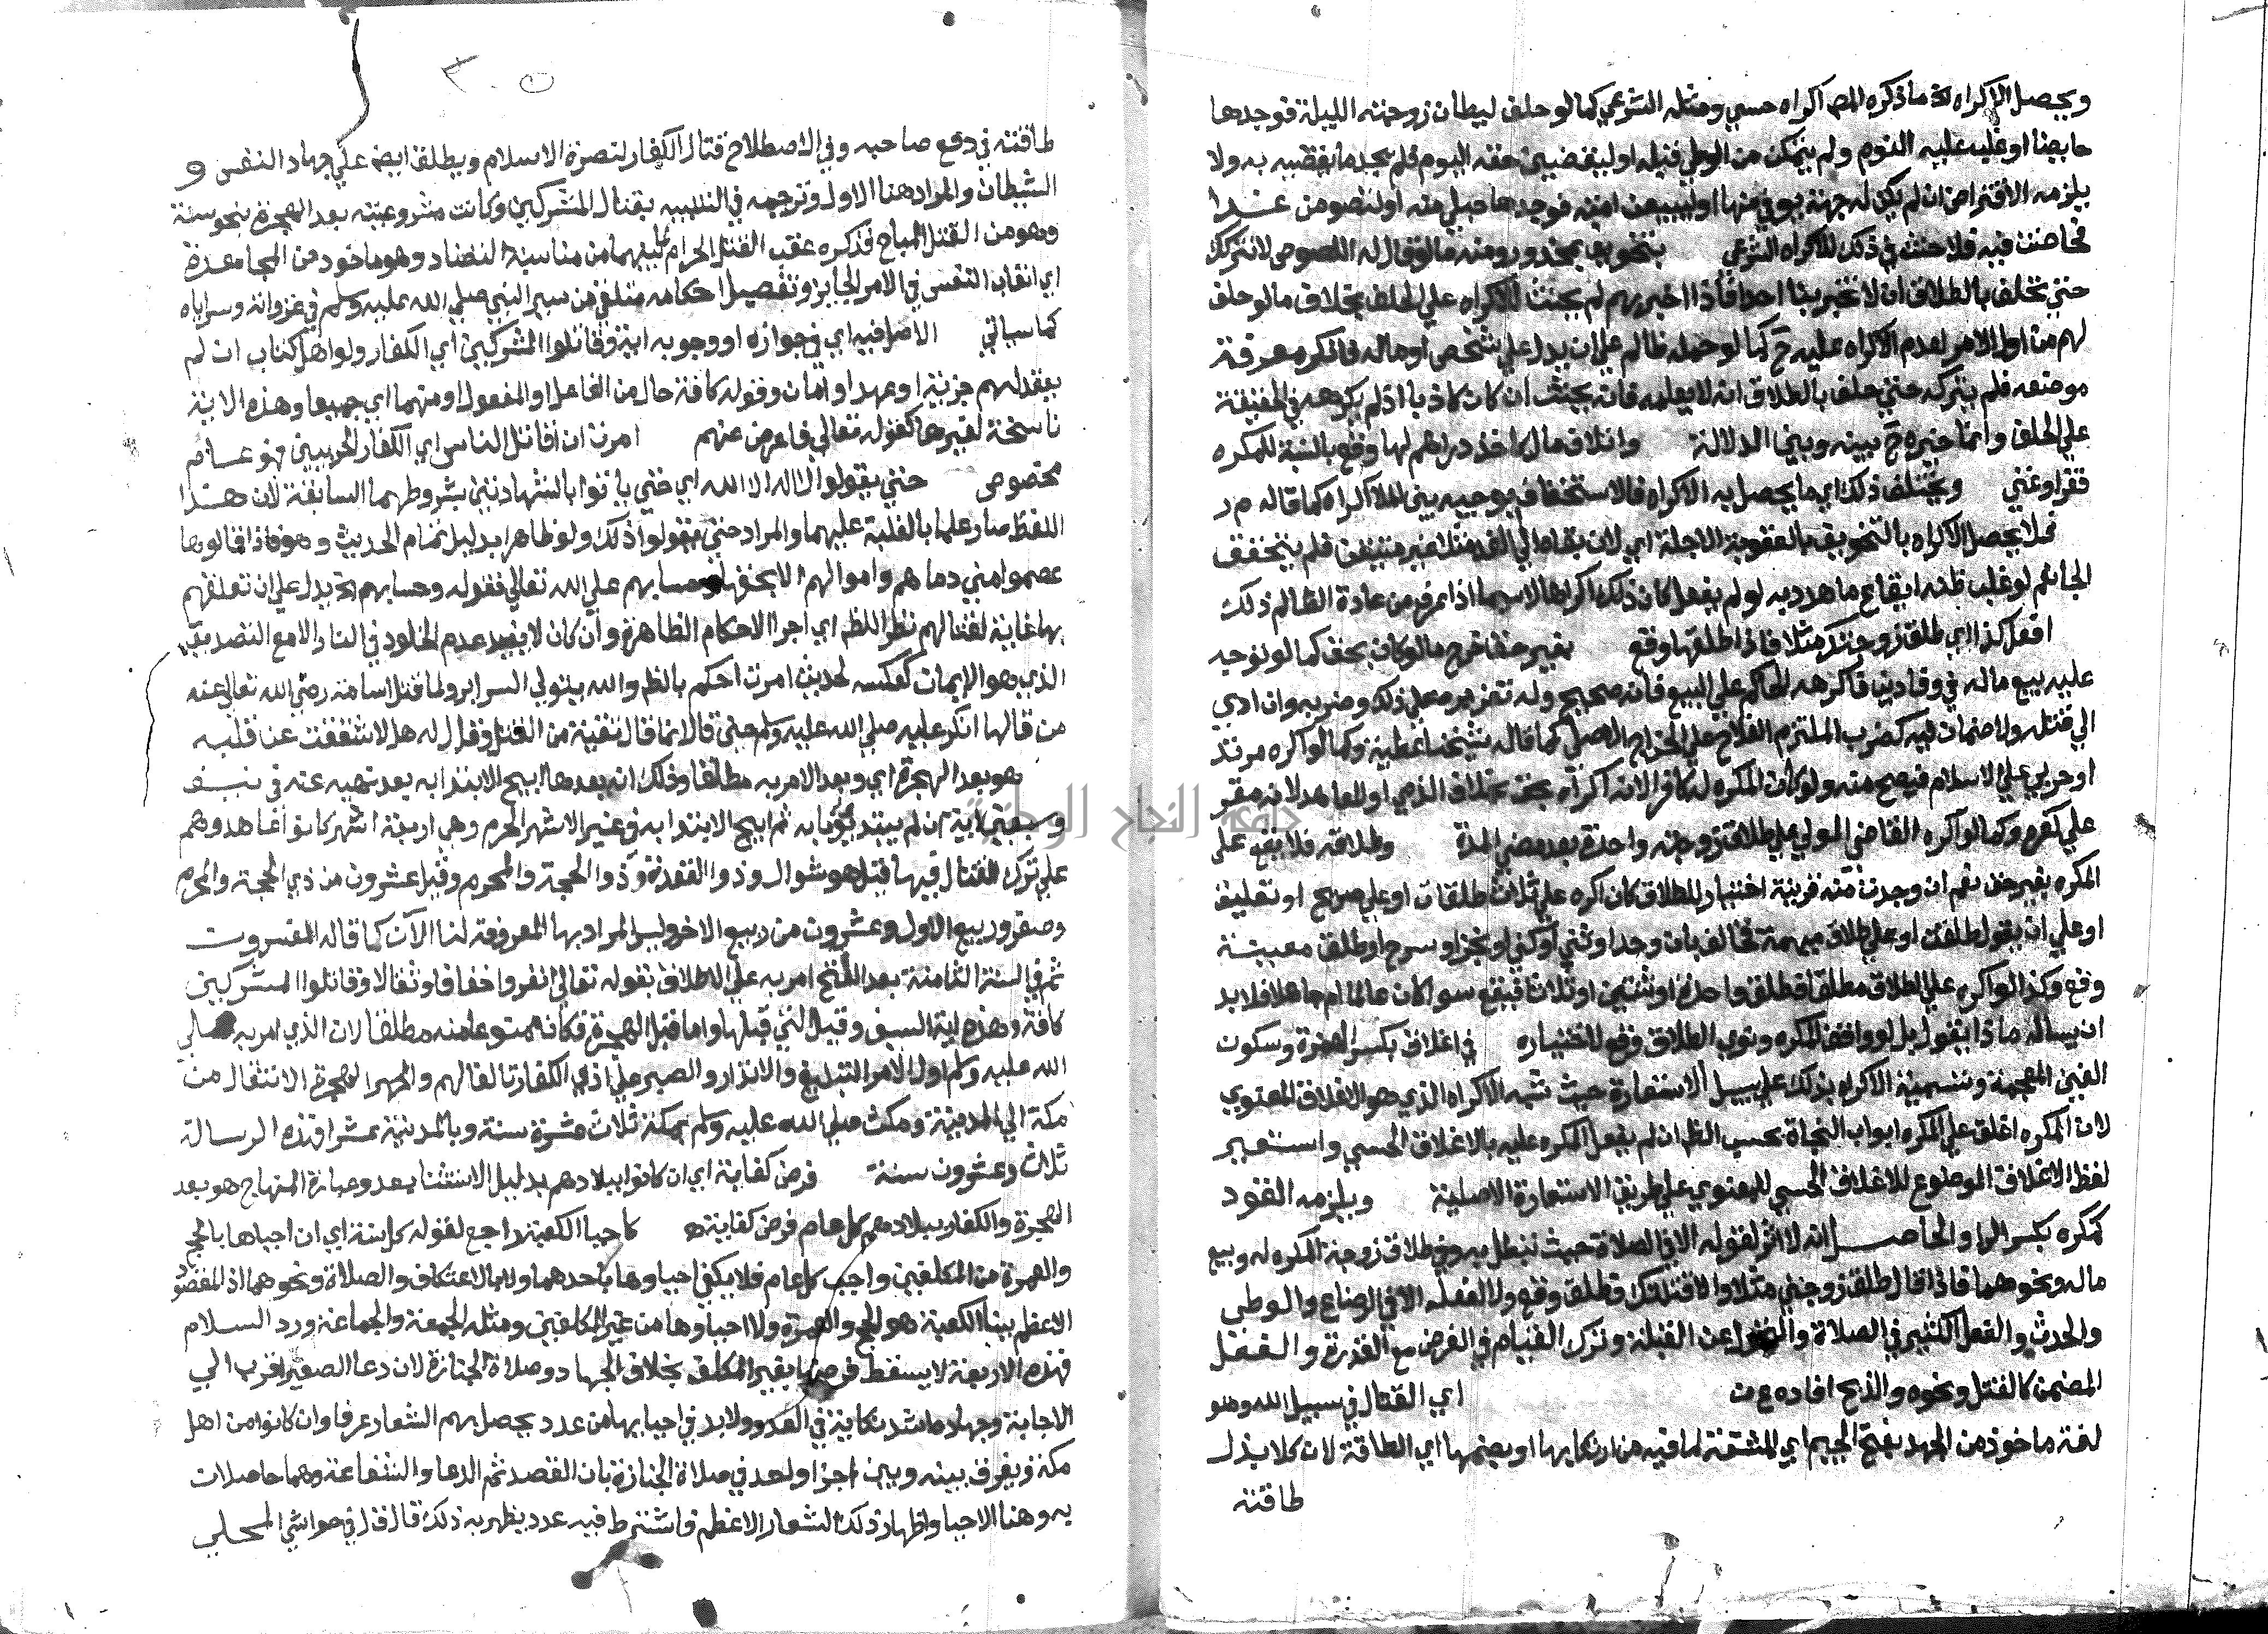 ويحصل الاكراه الخ ما ذكره المص اكراه حسي ومثله الشرعي كما لو حلف ليطان زوجته الليلة فوجدها
حايضا او غلبه عليه النوم ولم يتمكن من الوطي قبله او ليقضين حقه اليوم فلم يجد ما يقضيه به ولا
يلزمه الاقتراض ان لم يكن له جهة يوفي منها او ليبيعن امته فوجدها حبلى منه او لتصومن غدا
فحاضت فيه فلا حنث في ذلك للاكراه الشرعي بتخويف بمحذور ومنه ما لو قال له اللصوص لا نتركك
حتى تحلف بالطلاق ان لا تخبر بنا احدا فاذا اخبر بهم لم يحنث للاكراه على الحلف بخلاف ما لو حلف
لهم من اول الامر لعدم الاكراه عليه ح كما لو حمله ظالم على ان يدل على شخص او ماله فانكر معرفة
موضعه فلم يتركه حتى حلف بالطلاق انه لا يعلمه فانه يحنث ان كان كاذبا اذ لم يكرهه في الحقيقة
على الحلف وانما خيره ح بينه وبين الدلالة واتلاف مال كاخذ دراهم لها وقع بالنسبة للمكره
فقرا وغنى ويختلف ذلك اي ما يحصل به الاكراه فالاستخفاف بوجيه بين الملا اكراه كما قاله م ر
فلا يحصل الاكراه بالتخويف بالعقوبة الاجلة اي لان بقاه الى الغد مثلا غير متيقن فلم يتحقق
الجا نعم لو غلب ظنه ايقاع ما هدد به لو لم يفعل كان ذلك اكراها لاسيما اذا عرف من عادة الظالم ذلك
افعل كذا اي طلق زوجتك مثلا فاذا طلقها وقع بغير حق خرج ما لو كان بحق كما لو توجه
عليه بيع ماله في وفا دينه فاكرهه الحاكم على البيع فانه صحيح وله تعزيره على ذلك وضربه وان ادى
الى قتله ولا ضمان فيه كضرب الملتزم الفلاح على الخراج الاصل كما قاله شيخنا عطية وكما لو اكره مرتد
او حربي على الاسلام فيصح منه ولو كان المكره له كافرا لانه اكراه بحق بخلاف الذمي او المعاهد لانه مقر
على كفره وكما لو اكره القاضي المولي على طلاق زوجته واحدة بعد مضي المدة وطلاقه فلا يقع على
المكره بغير حق نعم ان وجدت منه قرينة اختيار للطلاق كان اكره على ثلاث طلقات او على صريح او تعليق
او على ان يقول طلقت او على طلاق مبهمة فخالف بان وحد او ثنى او كنى او نجز او سرح او طلق معينة
وقع وكذا لو اكره على الطلاق مطلقا فطلق واحدة او ثنتين او ثلاث فيقع سوا كان عالما ام جاهلا فلا بد
ان يساله ماذا يقول بل لو وافق المكره ونوى الطلاق وقع لاختياره في اغلاق بكسر الهمزة وسكون
الغين المعجمة وتسمية الاكراه بذلك على سبيل الاستعارة حيث شبه الاكراه الذي هو الاغلاق المعنوي
لان المكره اغلق على المكره ابواب النجاة بحسب الظ ان لم يفعل المكره عليه بالاغلاق الحسي واستعير
لفظ الاغلاق الموضوع للاغلاق الحسي للمعنوي على طريق الاستعارة الاصلية ويلزمه القود
كمكره بكسر الرا والحاصل انه لا اثر لقوله الا في الصلاة حيث تبطل به وفي طلاق زوجة المكره له وبيع
ماله ونحوهما فاذا قال طلق زوجتي مثلا والا قتلتك فطلق وقع ولا لفعله الا في الرضاع والوطي
والحدث والفعل الكثير في الصلاة والتحول عن القبلة وترك القيام في الفرض مع القدرة والفعل
المضمن كالقتل ونحوه والذبح افاده ع ش اي القتال في سبيل الله وهو
لغة ماخوذ من الجهد بفتح الجيم اي المشقة لما فيه من ارتكابها او بضمها اي الطاقة لان كلا يبذل
طاقته
٣٠٥
طاقته في دفع صاحبه وفي الاصطلاح قتال الكفار لنصرة الاسلام ويطلق ايضا على جهاد النفس و
الشيطان والمراد هنا الاول وترجمه في التنبيه بقتال المشركين وكانت مشروعيته بعد الهجرة بنحو سنة
وهو من القتل المباح فذكره عقب القتل الحرام لما بينهما من مناسبة التضاد وهو ماخوذ من المجاهدة
اي اتعاب النفس في الامر الجايز وتفصيل احكامه متلقى من سير النبي صلى الله عليه وسلم في غزواته وسراياه
كما سياتي الاصل فيه اي في جوازه او وجوبه اية وقاتلوا المشركين اي الكفار ولو اهل كتاب ان لم
يعقد لهم جزية او عهد او امان وقوله كافة حال من الفاعل او المفعول او منهما اي جميعا وهذه الاية
ناسخة لغيرها كقوله تعالى فاعرض عنهم امرت ان اقاتل الناس اي الكفار الحربيين فهو عام
مخصوص حتى يقولوا لا اله الا الله اي حتى ياتوا بالشهادتين بشروطهما السابقة لان هذا
اللفظ صار علما بالغلبة عليهما والمراد حتى يقولوا ذلك ولو ظاهرا بدليل تمام الحديث وهو فاذا قالوها
عصموا مني دماهم واموالهم الا بحقها وحسابهم على الله تعالى فقوله وحسابهم الخ يدل على ان تعلقهم
بها غاية لقتالهم نظرا للظ اي اجرا الاحكام الظاهرة وان كان لا يفيد عدم الخلود في النار الا مع التصديق
الذي هو الايمان كعكسه لحديث امرت احكم بالظ والله يتولى السراير ولما قتل اسامة رضي الله تعالى عنه
من قالها انكر عليه صلى الله عليه وسلم حتى قال انما قال تقية من القتل وقال له هلا شققت عن قلبه
هو بعد الهجرة اي وبعد الامر به مطلقا وذلك انه بعدها ابيح الابتدا به بعد نهيه عنه في نيف
وسبعين اية ان لم يبتدئونا به ثم ابيح الابتدا به في غير الاشهر الحرم وهي اربعة اشهر كانوا عاهدوهم
على ترك القتال فيها قيل هو شوال وذو القعدة وذو الحجة والمحرم وقيل عشرون من ذي الحجة والمحرم
وصفر وربيع الاول وعشرون من ربيع الاخر وليس المراد بها المعروفة لنا الآن كما قاله المفسرون
ثم في السنة الثامنة بعد الفتح امر به على الاطلاق بقوله تعالى انفروا خفافا وثقالا وقاتلوا المشركين
كافة وهذه اية السيف وقيل التي قبلها واما قبل الهجرة فكان ممنوعا منه مطلقا لان الذي امر به صلى
الله عليه وسلم اول الامر التبليغ والانذار والصبر على اذى الكفار تالفا لهم والهجرة الانتقال من
مكة الى المدينة ومكث صلى الله عليه وسلم بمكة ثلاث عشرة سنة وبالمدينة عشرا فهذه الرسالة
ثلاث وعشرون سنة فرض كفاية اي ان كانوا ببلادهم بدليل الاستثنا بعد وعبارة المنهاج هو بعد
الهجرة والكفار ببلادهم كل عام فرض كفاية كاحيا الكعبة راجع لقوله كل سنة اي ان احياها بالحج
والعمرة من المكلفين واجب كل عام فلا يكفي احياوها باحدهما ولا بالاعتكاف والصلاة ونحوهما اذ المقصود
الاعظم ببنا الكعبة هو الحج والعمرة ولا احياوها من غير المكلفين ومثله الجمعة والجماعة ورد السلام
فهذه الاربعة لا يسقط فرضها بغير المكلف بخلاف الجهاد وصلاة الجنازة لان دعا الصغير اقرب الى
الاجابة وجهاده اشد نكاية في العدو ولا بد في احيايها من عدد يحصل بهم الشعار عرفا وان كانوا من اهل
مكة ويفرق بينه وبين اجزا واحد في صلاة الجنازة بان القصد ثم الدعا والشفاعة وهما حاصلان
به وهنا الاحيا واظهار ذلك الشعار الاعظم فاشترط فيه عدد يظهر به ذلك قال ق ل في حواشي المحلي